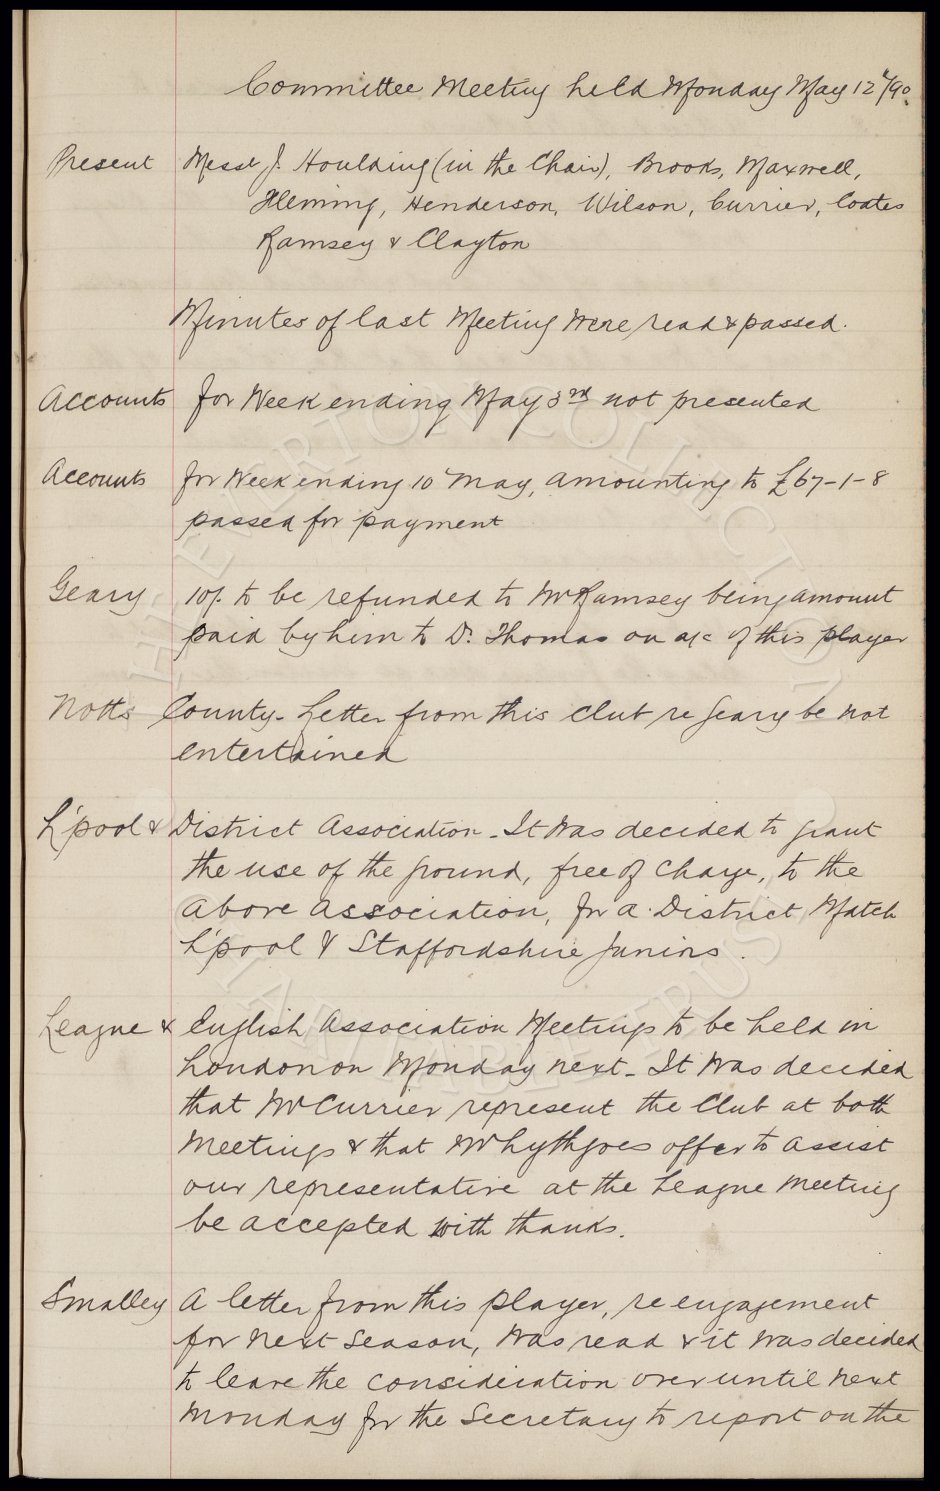 Committee Meeting held Monday May 12th/90.
Present Messrs J. Houlding (in the Chair), Brooks, Maxwell,
Fleming, Henderson, Wilson, Currier, Coates
Ramsey & Clayton
Minutes of last Meeting were read & passed.
Accounts for Week ending May 3rd not presented
Accounts for Week ending 10 May, amounting to £67-1-8
passed for payment
Geary 10/. to be refunded to Mr Ramsey being amount
paid by him to Dr. Thomas on a/c of this player
Notts County - Letter from this Club re Geary be not
entertained
L'pool & District Association - It was decided to grant
the use of the ground, free of charge, to the
above association, for a District Match
L'pool V Staffordshire Juniors.
League & English Association Meetings to be held in
London on Monday next - It was decided
that Mr Currier represent the Club at both
Meetings & that Mr Lythgoes offer to assist
our representative at the League Meeting
be accepted with thanks.
Smalley A letter from this player, re engagement
for next season, was read & it was decided
to leave the consideration over until next
Monday for the Secretary to report on the
THE EVERTON COLLECTION
CHARITABLE TRUST